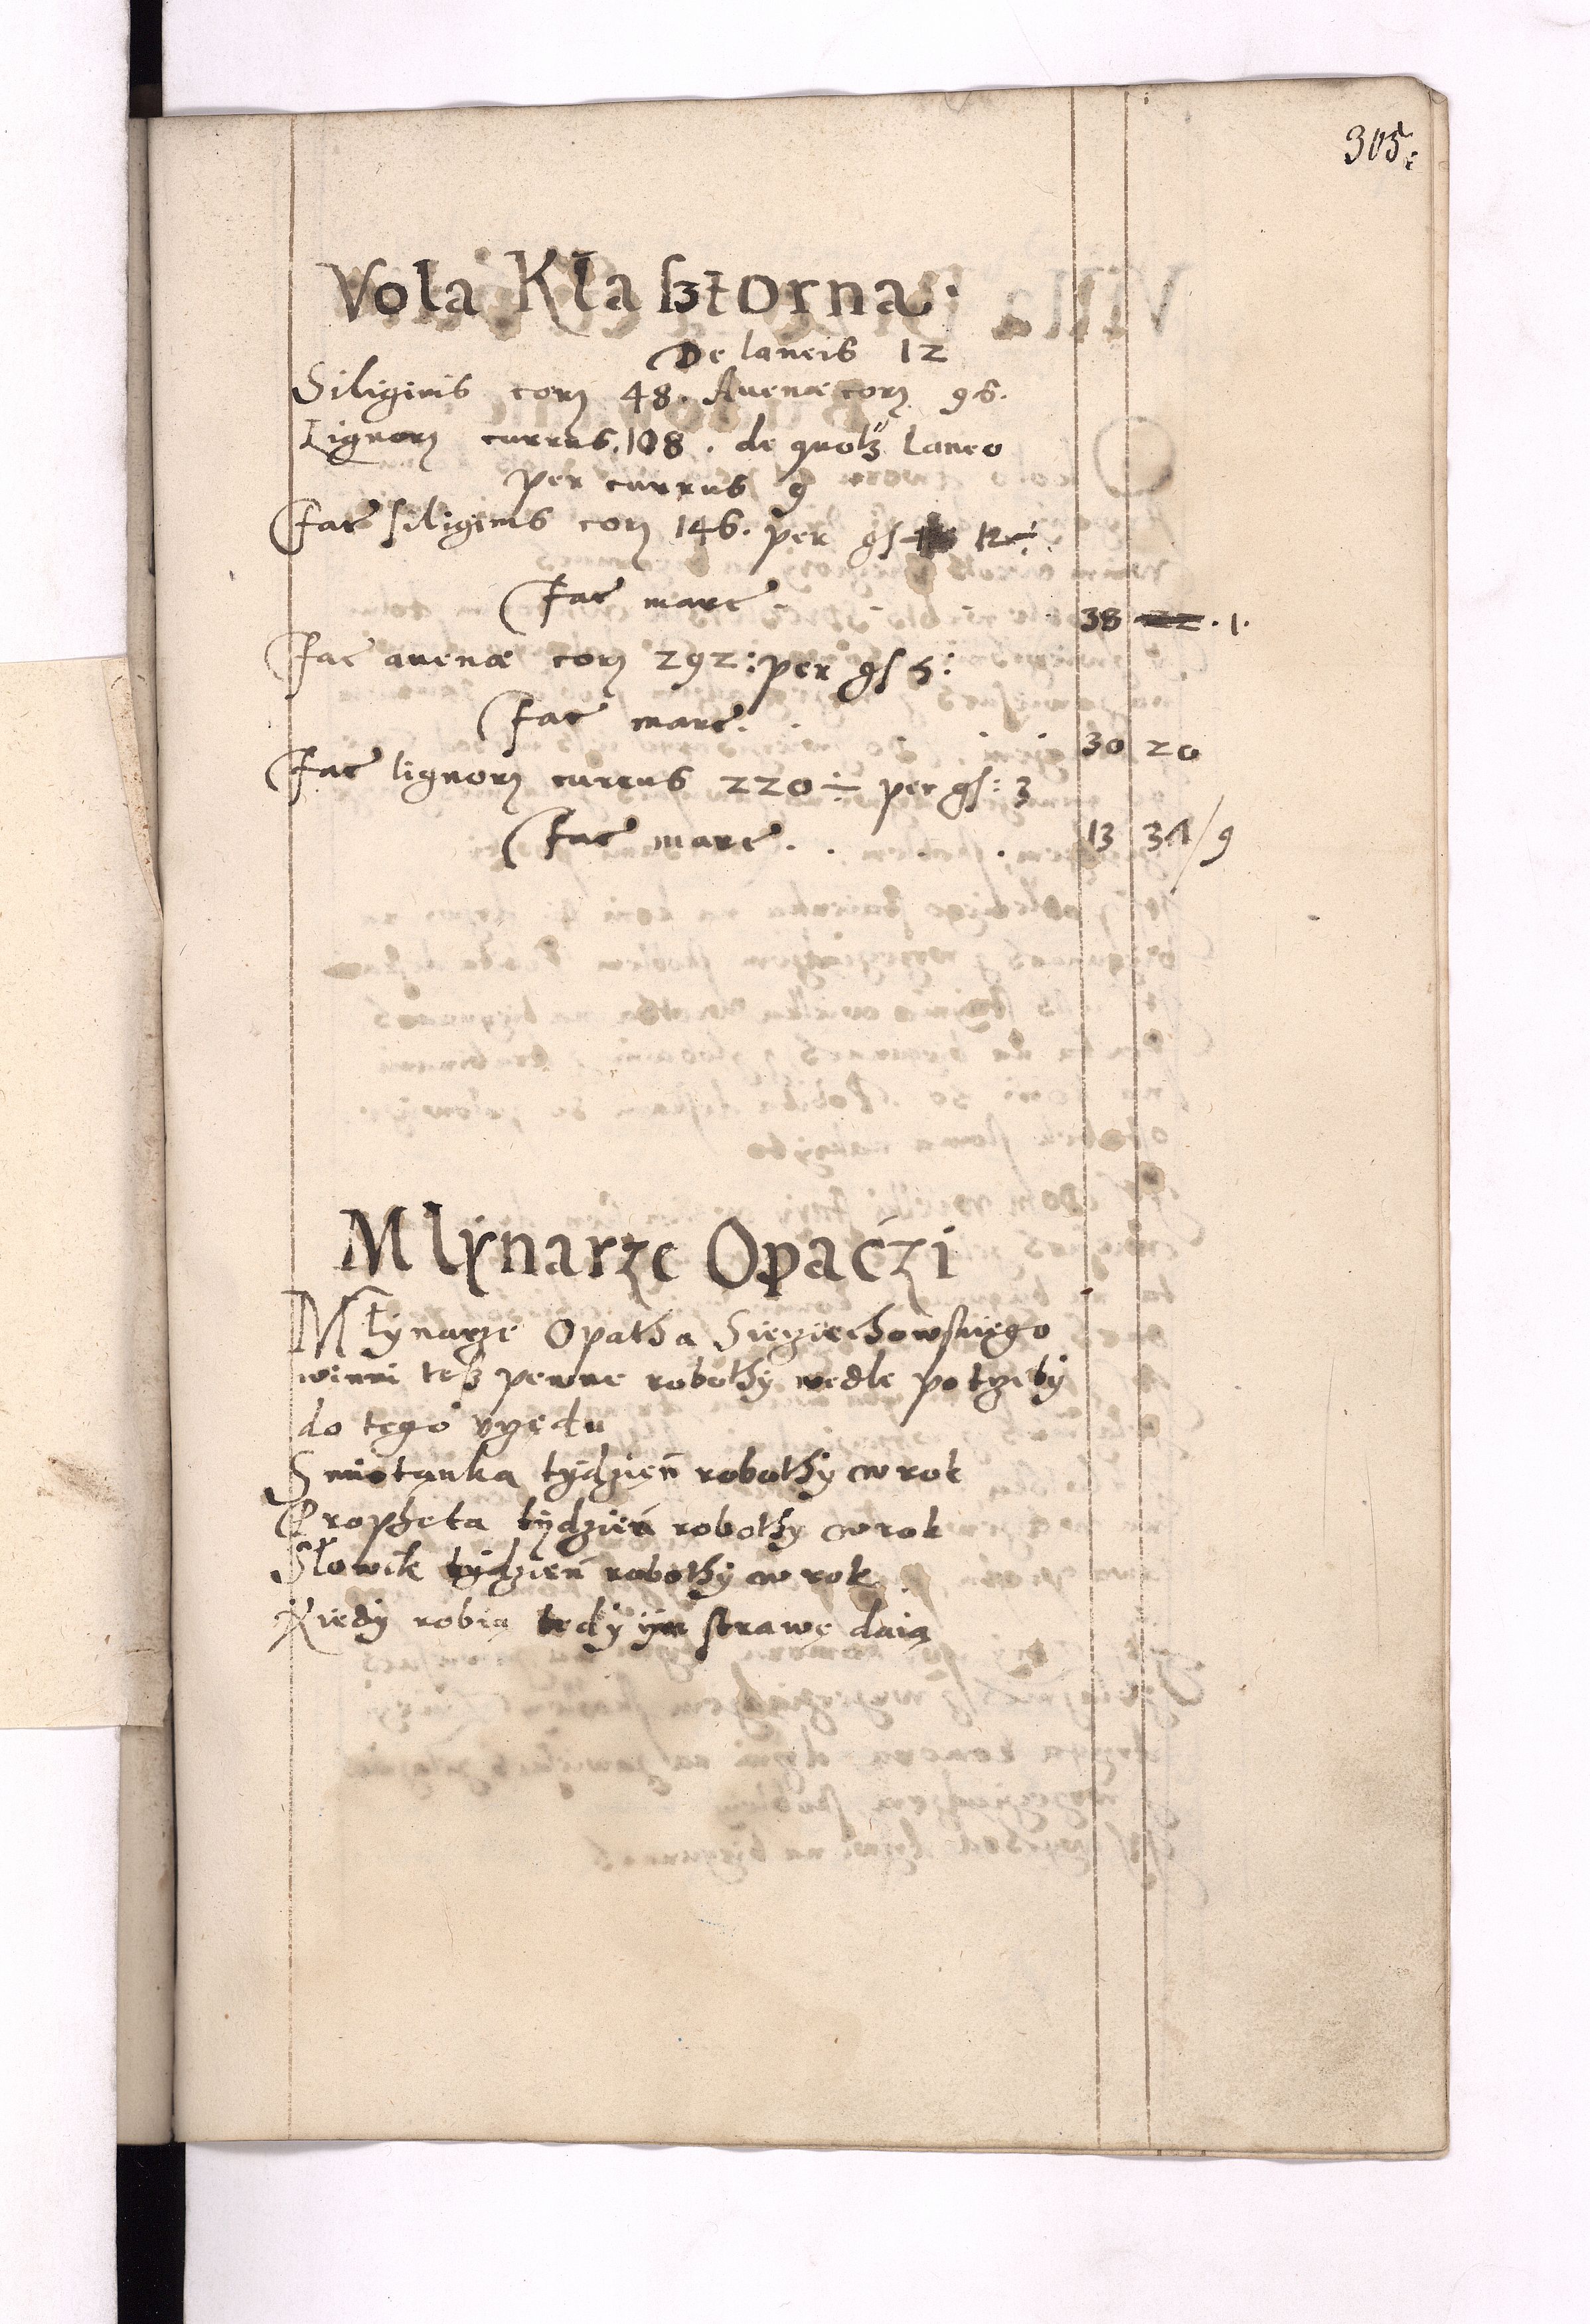 305
Vola Klasztorna.
De laneis 12
Siliginis corꝫ 48. Auenæ corꝫ 96.
Lignorꝫ currus. 108. de quolꝫ laneo
per currus 9
fac siliginis corꝫ 146. per gſ 12÷
fac marc. 38 .1.
fac auenæ corꝫ 292: per gſ 5:
fac marc. . 30 20
fac lignorꝫ currus 220÷ per gſ: 3
fac marc. . . . 13 37/9
Mlynarze Opaćzi
Młynarze Opatha Sieciechowskiego
winni też pewne robothy wedle potrzeby
do tego vrzędu
Smiotanka tydzień robothy w rok
Propheta tydzień robothy w rok
Słowik tydzień robothy w rok
Kiedy robią tedy ym strawę daią